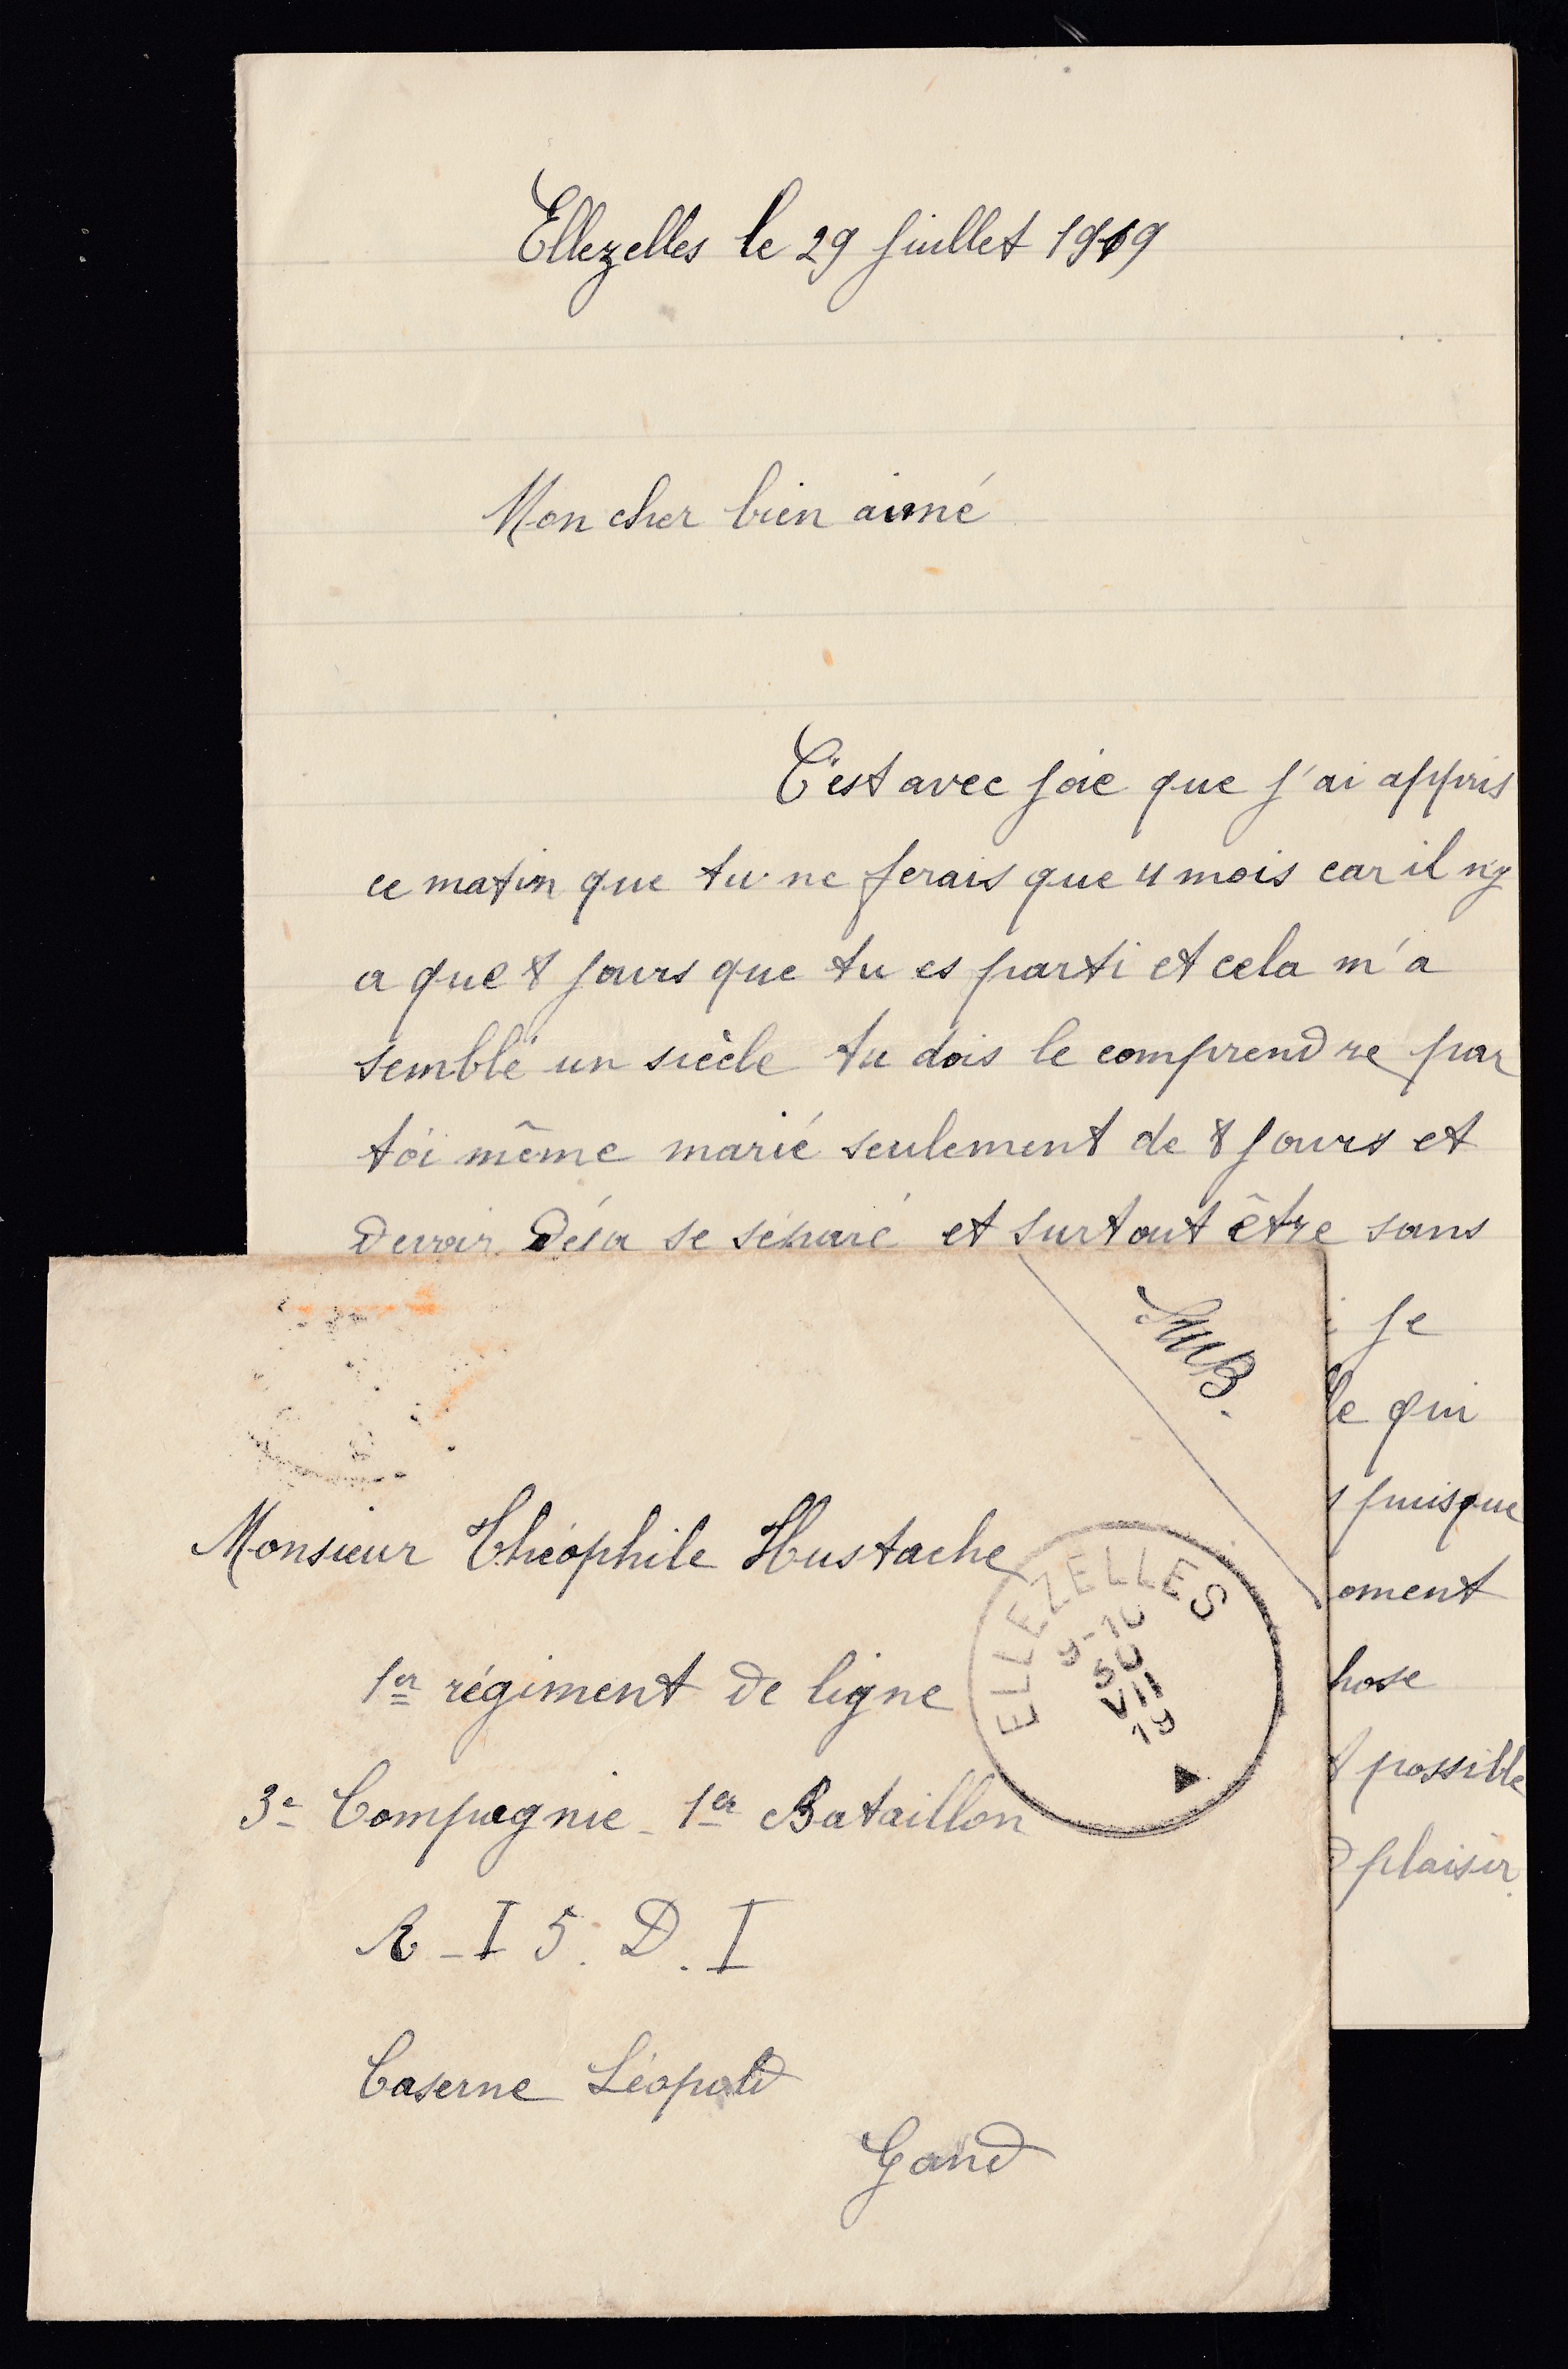 Ellezelles le 29 juillet 1919
Mon cher bien aimé
C'est avec joie que j'ai appris
ce matin que tu ne ferais que 4 mois car il n'y
a que 8 jours que tu es parti et cela m'a
semblé un siècle tu dois le comprendre par
toi même marié seulement de 8 jours et
devoir déja se séparé et surtout être sans
je
le qui
puisque
oment
hose
possible
plaisir
SMB.
Monsieur Théophile Hustache
1er régiment de ligne
3e Compagnie - 1er Bataillon
A - I 5. D. I
Caserne Léopold
Gand
ELLEZELLES
VII
19